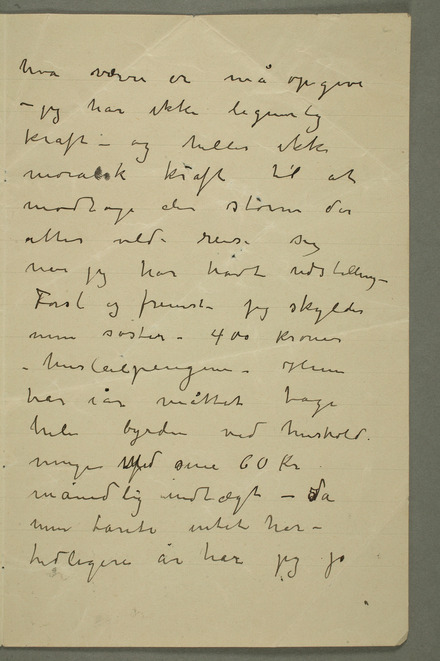 hva værre er må opgive
– jeg har ikke legemlig
kraft – og heller ikke
moralsk kraft til at
modtage den storm der
atter vilde reise sig
når jeg har havt udstilling –
Først og fremst – jeg skylder
min søster – 400 kroner
– husleiepengene – Hun
har iår måttet tage
hele byrden ved hushold-
ningen Med sine 60 Kr
månedlig indtægt – da
min tante intet har –
tidligere år har jeg jo